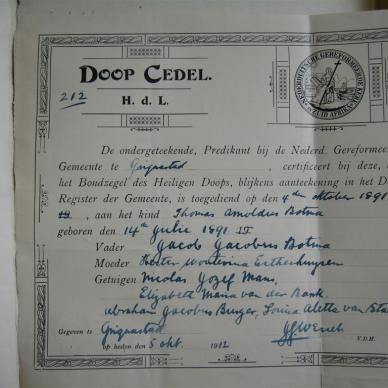 DOOP CEDEL.
212
H. d. L.
NEDERDUITSCHE GEREFORMEERDE KERK
ZUID AFRIKA
De ondergeteekende, Predikant bij de Nederd. Gereformee
Gemeente te , certificeert bij deze,
het Bondzegel des Heiligen Doops, blijkens aanteekening in het Do
Register der Gemeente, is toegediend op den 4de October 1891
19 , aan het kind Thomas Arnoldus Botma
geboren den 14de Julie 1891 19
Vader Jacob Jacobus Botma
Moeder Hester
Getuigen Nicolas Jozef Mans,
Elizabeth Maria van der Bank
Abraham Jacobus Burger, Louisa Aletta van Sta
Gegeven te
op heden 5 Okt. 1912
V.D.M.